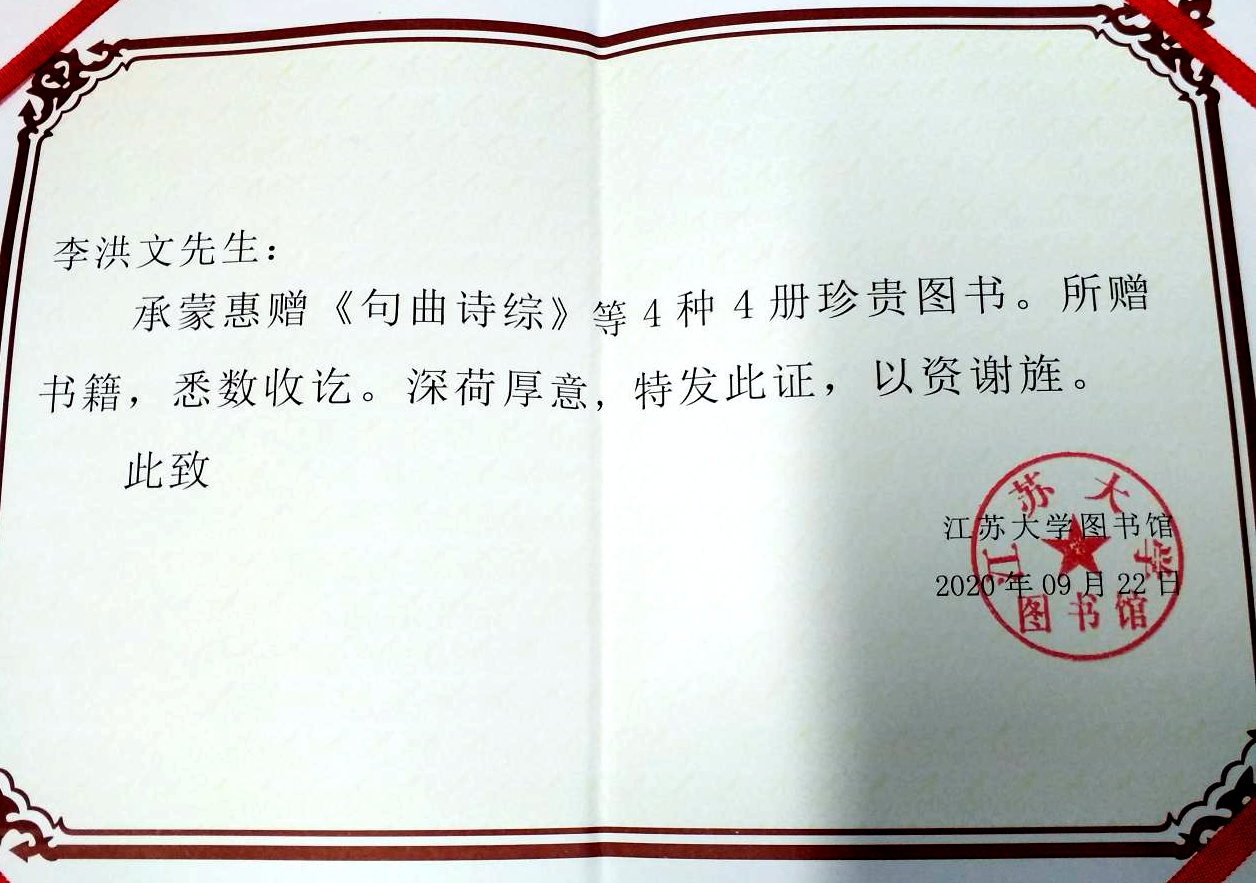 李洪文先生：
承蒙惠赠《句曲诗综》等4种4册珍贵图书。所赠
书籍，悉数收讫。深荷厚意，特发此证，以资谢旌。
此致
江苏大学图书馆
2020年09月22日
江苏大学
图书馆